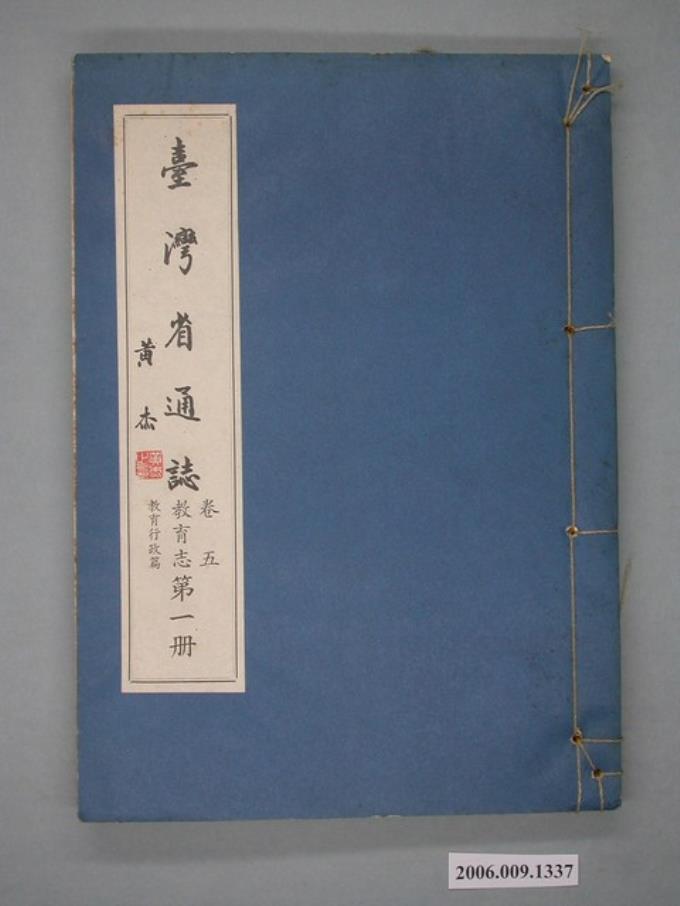 臺灣省通誌
卷五
教育志第一册
教育行政篇
黃杰
2006.009.1337